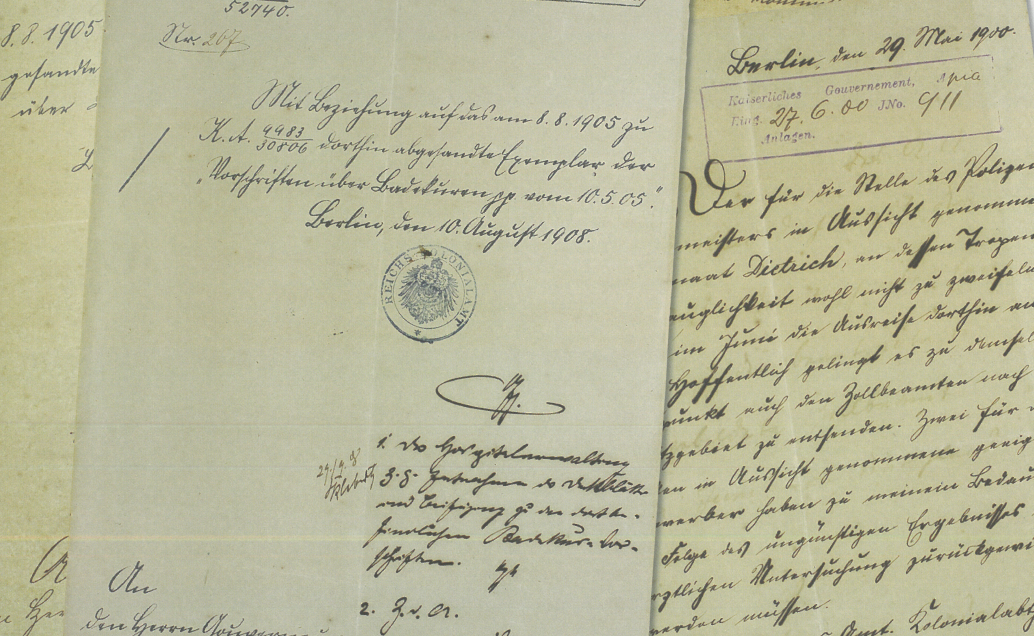 8. 8. 1905
gesandte
über
52740.
Nr. 267
Mit Beziehung auf das am 8. 8. 1905 zu
K. A. 9983/30806 dorthin abgesandte Exemplar der
"Vorschriften über Badekuren pp vom 10. 5. 05".
Berlin, den 10. August 1908.
REICHS KOLONIALAMT
1. Der Hospitalverwaltung
z. g. Entnahme der
und Beifügung zu den dort be-
findlichen Badekur-Vor-
schriften.
2. Z. d. A.
An
den Herrn Gouverne
Berlin, den 29. Mai 1900.
Kaiserliches Gouvernement, Apia
Eing. 27. 6. 00 JNo. 911
Anlagen.
Der für die Stelle des Polizei
meisters in Aussicht genomm
maat Dietrich, an dessen Tropen
tauglichkeit wohl nicht zu zweifeln
im Juni die Ausreise dorthin an
Hoffentlich gelingt es zu demsel
punkt auch den Zollbeamten nach
zgebiet zu entsenden. Zwei für
in Aussicht genommene geeig
werber haben zu meinem Bedau
Folge des ungünstigen Ergebnisses
rztlichen Untersuchung zurückgewi
werden müssen.
Amt. Kolonialabt